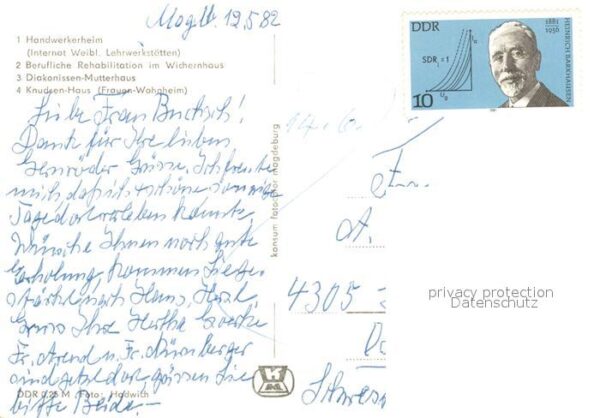 Magdb. 12.5.82
1 Handwerkerheim
(Internat Weibl. Lehrwerkstätten)
2 Berufliche Rehabilitation im Wichernhaus
3 Diakonissen-Mutterhaus
4 Knudsen-Haus (Frauen-Wohnheim)
Liebe Frau
Dank für Ihre lieben
Gernröder Grüsse. Ich freute
mich daß ich schöne sonnige
Tage dort erleben konnte.
Wünsche Ihnen noch gute
Erholung, kommen Sie ge-
stärkt nach Haus. Herzl.
Gruss Ihre Hertha
Fr. Arend u. Fr. Nürnberger
sind jetzt dort, grüssen Sie
bitte Beide.
DDR 0,25 M Foto: Hadwich
konsum fotocolor magdeburg
DDR
SDRi=1
10
1881
1956
HEINRICH BARKHAUSEN
Fr.
A.
4305
privacy protection
Datenschutz